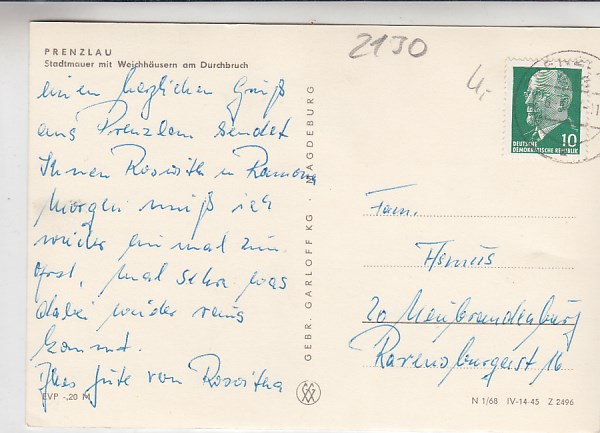 PRENZLAU
Stadtmauer mit Weichhäusern am Durchbruch
einen herzlichen Gruß
aus Prenzlau sendet
Ihnen Roswitha u Ramona
Morgen muß ich
wieder einmal zum
Arzt, mal sehn was
dabei wieder raus
kommt.
Alles Gute von Roswitha
EVP -,20 M
GEBR. GARLOFF KG · MAGDEBURG
2130
4,-
10
DEUTSCHE
DEMOKRATISCHE REPUBLIK
Fam.
20 Neubrandenburg
Ravensburgerst 16
N 1/68 IV-14-45 Z 2496